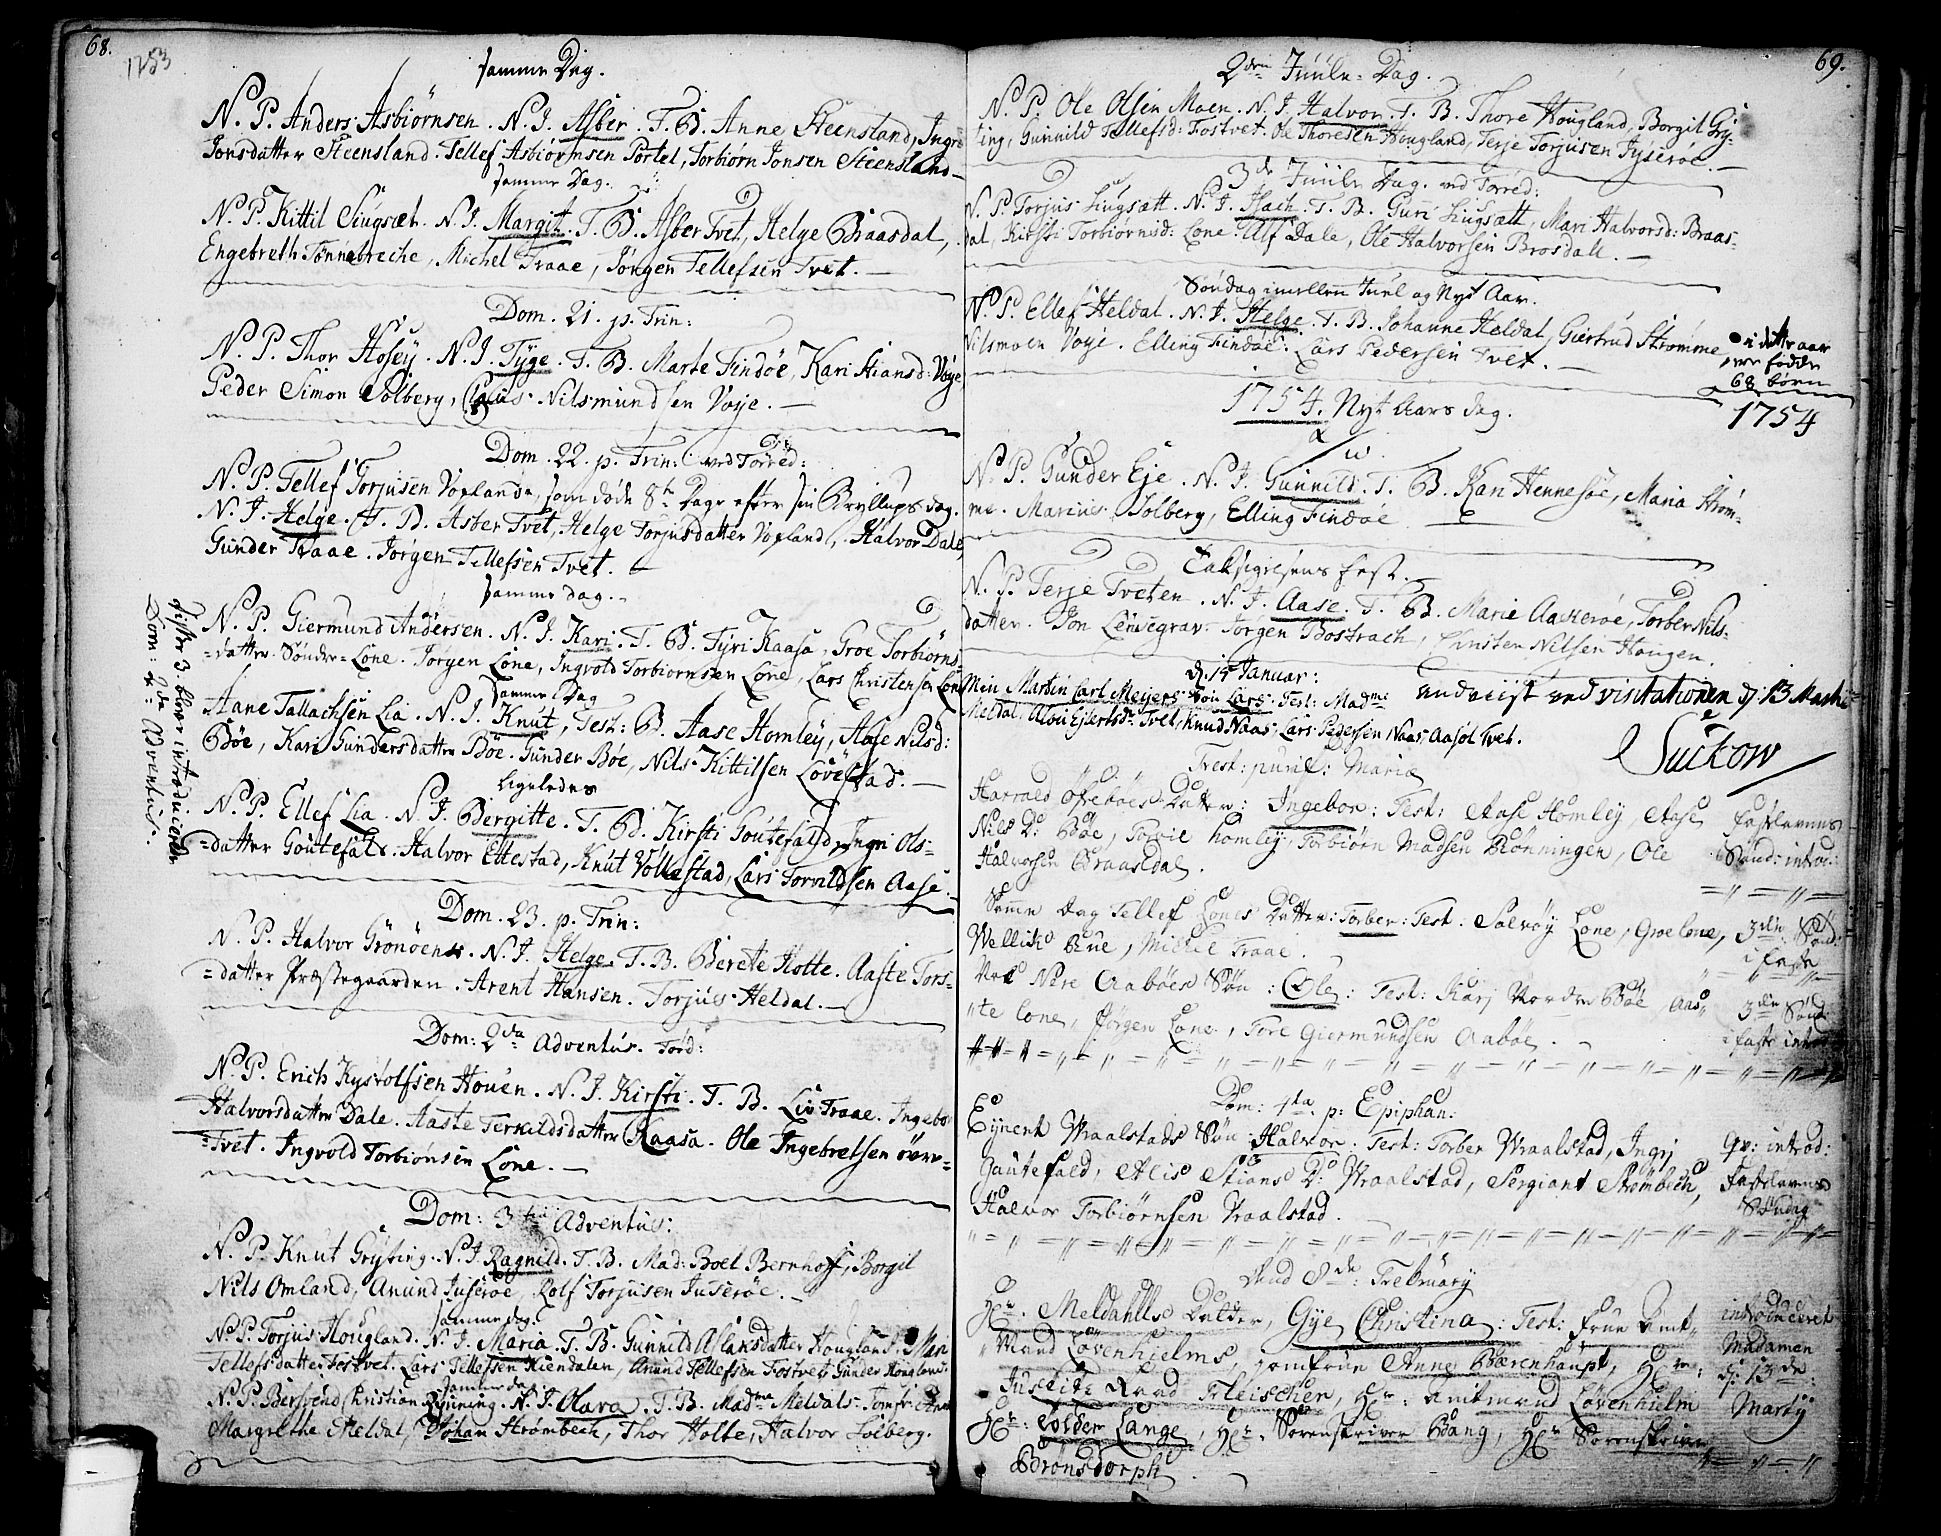 68.
1753
samme Dag.
N. P. Anders Asbiörnsen. N. I. Asber. T. B. Anne Steensland, Ingr
Jonsdatter Steensland. Tellef Asbiörnsen Portel, Torbiörn Jonsen Steensland
samme Dag.
N. P. Kittil Siugsæt. N. I. Margit. T. B. Asber Tvet, Helge Baasdal,
Engebreth Tønnebreche, Michel Traae, Jörgen Tellefsen Tvet.
Dom. 21. p. Trin:
N. P. Thor Hosey. N. I. Tyge. T. B. Marte Findöe, Kari Stiansd: Vöye
Peder Simon Solberg, Claus Nilsmundsen Voye.
Dom. 22. p. Trin: ved Torred:
N. P. Tellef Torjusen Vogland, som döde 8te Dage efter sin Bryllups dag.
N. I. Helge. T. B. Asber Tvet, Helge Torjusdatter Vogland, Halvor Dale,
Gunder Traae. Jörgen Tellefsen Tvet.
samme dag.
N. P. Giermund Andersen. N. I. Kari. T. B. Tyri Kaasa, Groe Torbiörns-
datter Sönder-Lone. Jörgen Lone, Ingvold Torbiornsen Lone, Lars Christensen Lone
samme Dag
Aane Tallachsen Lia. N. I. Knut, Test: B. Aase Homley, Aase Nilsd:
Böe, Kari Gundersdatter Böe. Gunder Böe, Nils Kittilsen Lövestad.
ligeledes
N. P. Ellef Lia. N. I. Bergitte. T. B. Kirsti Goutefald, Ingri Ols-
datter Goutefals. Halvor Ettestad, Knut Vollestad, Lars Torvildsen Aase.
disse 3. blev introducerede
Dom: 2da Adventus.
Dom. 23. p. Trin:
N. P. Halvor Grönöen. N. I. Helge. T. B. Berete Holte. Aaste Tors-
datter Præstegaarden. Arent Hansen. Torjus Heldal.
Dom: 2da Adventus. Tord:
N. P. Erich Kystolfsen Houen. N. I. Kirsti. T. B. Liv Traae. Ingebo
Halvorsdatter Dale. Aaste Terkildsdatter Kaasa. Ole Ingebretsen över-
Tvet. Ingvold Torbiönsen Lone.
Dom: 3tia Adventus:
N. P. Knut Gryting. N. I. Ragnild. T. B. Mad: Boel Bernhoft, Borgil
Nils Omland, Anund Juseröe, Rolf Torjusen Juseröe.
samme dag.
N. P. Torjus Hougland. N. I. Maria. T. B. Gunnild Aslansdatter Hougland, Mari
Tellefsdatter Fostvet. Lars Tellefsen Kiendalen, Anund Tellefsen Fostvet, Gunder Hougland.
samme dag
N. P. Bersvend Christian Rynning. N. I. Olava. T. B. Madme Meldals. Jomfr: Anne
Margrethe Meldal, Johan Strømbech, Thor Holte, Halvor Solberg.
69.
2den Juule-Dag.
N. P. Ole Olsen Moen. N. I. Halvor. T. B. Thore Hougland, Borgil Gry-
ting, Gunnild Tellefsd: Fostvet. Ole Thoresen Hougland, Terje Torjusen Jyseröe.
3de Juule Dag. ved Torred:
N. P. Torjus Siugsætt. N. I. Stach. T. B. Guri Siugsætt, Mari Halvorsd: Braas-
dal, Kirsti Torbiörnsd: Lone. Ulf Dale, Ole Halvorsen Brosdall.
Söndag imellem Juul og Nyt Aar.
N. P. Ellef Heldal. N. I. Helge. T. B. Johanne Heldal, Giertrud Strømme
Nilsmoen Voye. Elling Findöe. Lars Pedersen Tvet.
i dette aar
ere födde
68 börn
1754
1754. Nyt Aars dag.
N. P. Gunder Eje. N. I. Gunnild. T. B. Kari Hennesöe, Maria Ström-
me. Marius Solberg, Elling Findöe
Taksigelsens fest.
N. P. Terje Tveten. N. I. Aase. T. B. Marie Aasteröe, Torber Nils-
datter. Jon Lensegrav. Jörgen Bostrach, Christen Nilsen Hougen.
d. 14 Januar:
Min Martin Carl Meyers Sön Lars. Test: Madme
Meldal. Alou Ejlertsd: Tvet, Knud Naas, Lars Pedersen Naas, Aasol Tvet.
undviist ved visitationen d. 13 Martii
Suckow
Fest: purif: Mariæ
Harrald Ofseböes Datter: Ingebor: Test: Aase Homley, Aase
Nils D: Böe, Torvie Homley, Torbiörn Madsen Rönningen, Ole
Halvorsen Braasdal.
Fastelavns
Sönd: introd:
Samme Dag Tellef Lones Datter: Torber: Test. Salvöy Lone, Groe Lone,
Wellik Bue, Mickel Traae.
3die Sönd:
i faste
Nere Aaböes Sön: Ole: Test: Karj Nordre Böe, Aas-
te Lone, Jörgen Lone, Tore Giermundsen Aaböe.
3die Sönd:
i faste introd
Dom: 1ta p: Epiphan:
Ejnert Vraalstads Sön Halvor. Test: Torber Vraalstad, Ingrj
Gautefald, Alis Stians D: Vraalstad, Sergiant Strömbech,
Halvor Torbiörnsen Vraalstad.
qv: introd:
Fastelavens
Söndag
dend 8de Februarij
Hr. Meldahlls Datter, Gye Christina: Test: Frue Amt-
Mand Lövenhielms, Jomfrue Anne Bærenhaupt, Hr:
Justitz Raad Fleischer, Hr: Amtmand Lövenhielm
Hr: Tolder Lange, Hr. Sorenskriver Bang, Hr Sorenskriver
Bronsdorph.
introduceret
Madamen
d: 13de:
Martij